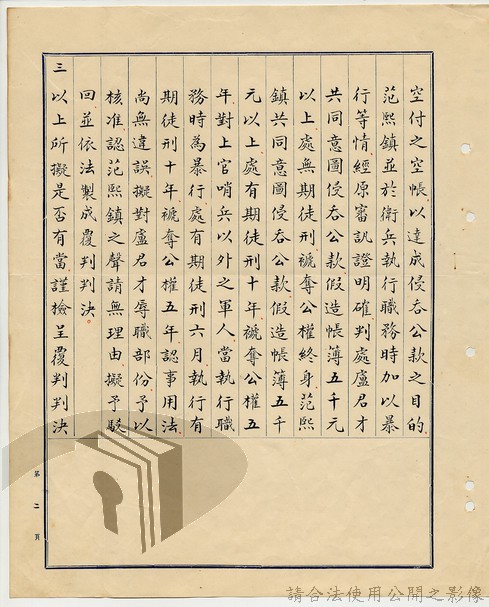 空付之空帳以達成侵吞公款之目的
范熙鎮並於衛兵執行職務時加以暴
行等情經原審訊證明確判處盧君才
共同意圖侵吞公款假造帳薄五千元
以上處無期徒刑褫奪公權終身范熙
鎮共同意圖侵吞公款假造帳薄五千
元以上處有期徒刑十年褫奪公權五
年對上官哨兵以外之軍人當執行職
務時為暴行處有期徒刑六月執行有
期徒刑十年褫奪公權五年認事用法
尚無違誤擬對盧君才辱職部份予以
核准認范熙鎮之聲請無理由擬予駁
回並依法製成覆判判決
三以上所擬是否有當謹檢呈覆判判決
第二頁
請合法使用公開之影像